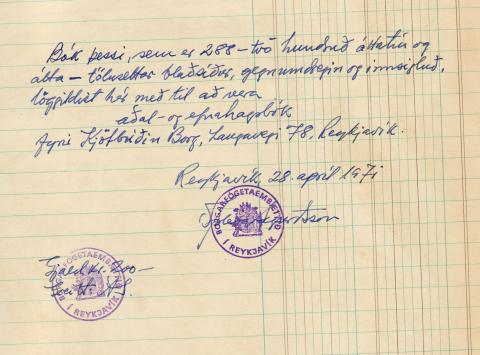 Bók þessi, sem er 288 – tvö hundruð áttatíu og
átta – tölusettar blaðsíður, gegnumdregin og innsigluð,
löggildist hér með til að vera
aðal- og efnahagsbók
fyrir Kjötbúðin Borg, Laugavegi 78, Reykjavík.
Reykjavík, 28. apríl 1971
BORGARFÓGETAEMBÆTTIÐ
Í REYKJAVÍK
Gjald kr.
BORGARFÓGETAEMBÆTTIÐ
Í REYKJAVÍK